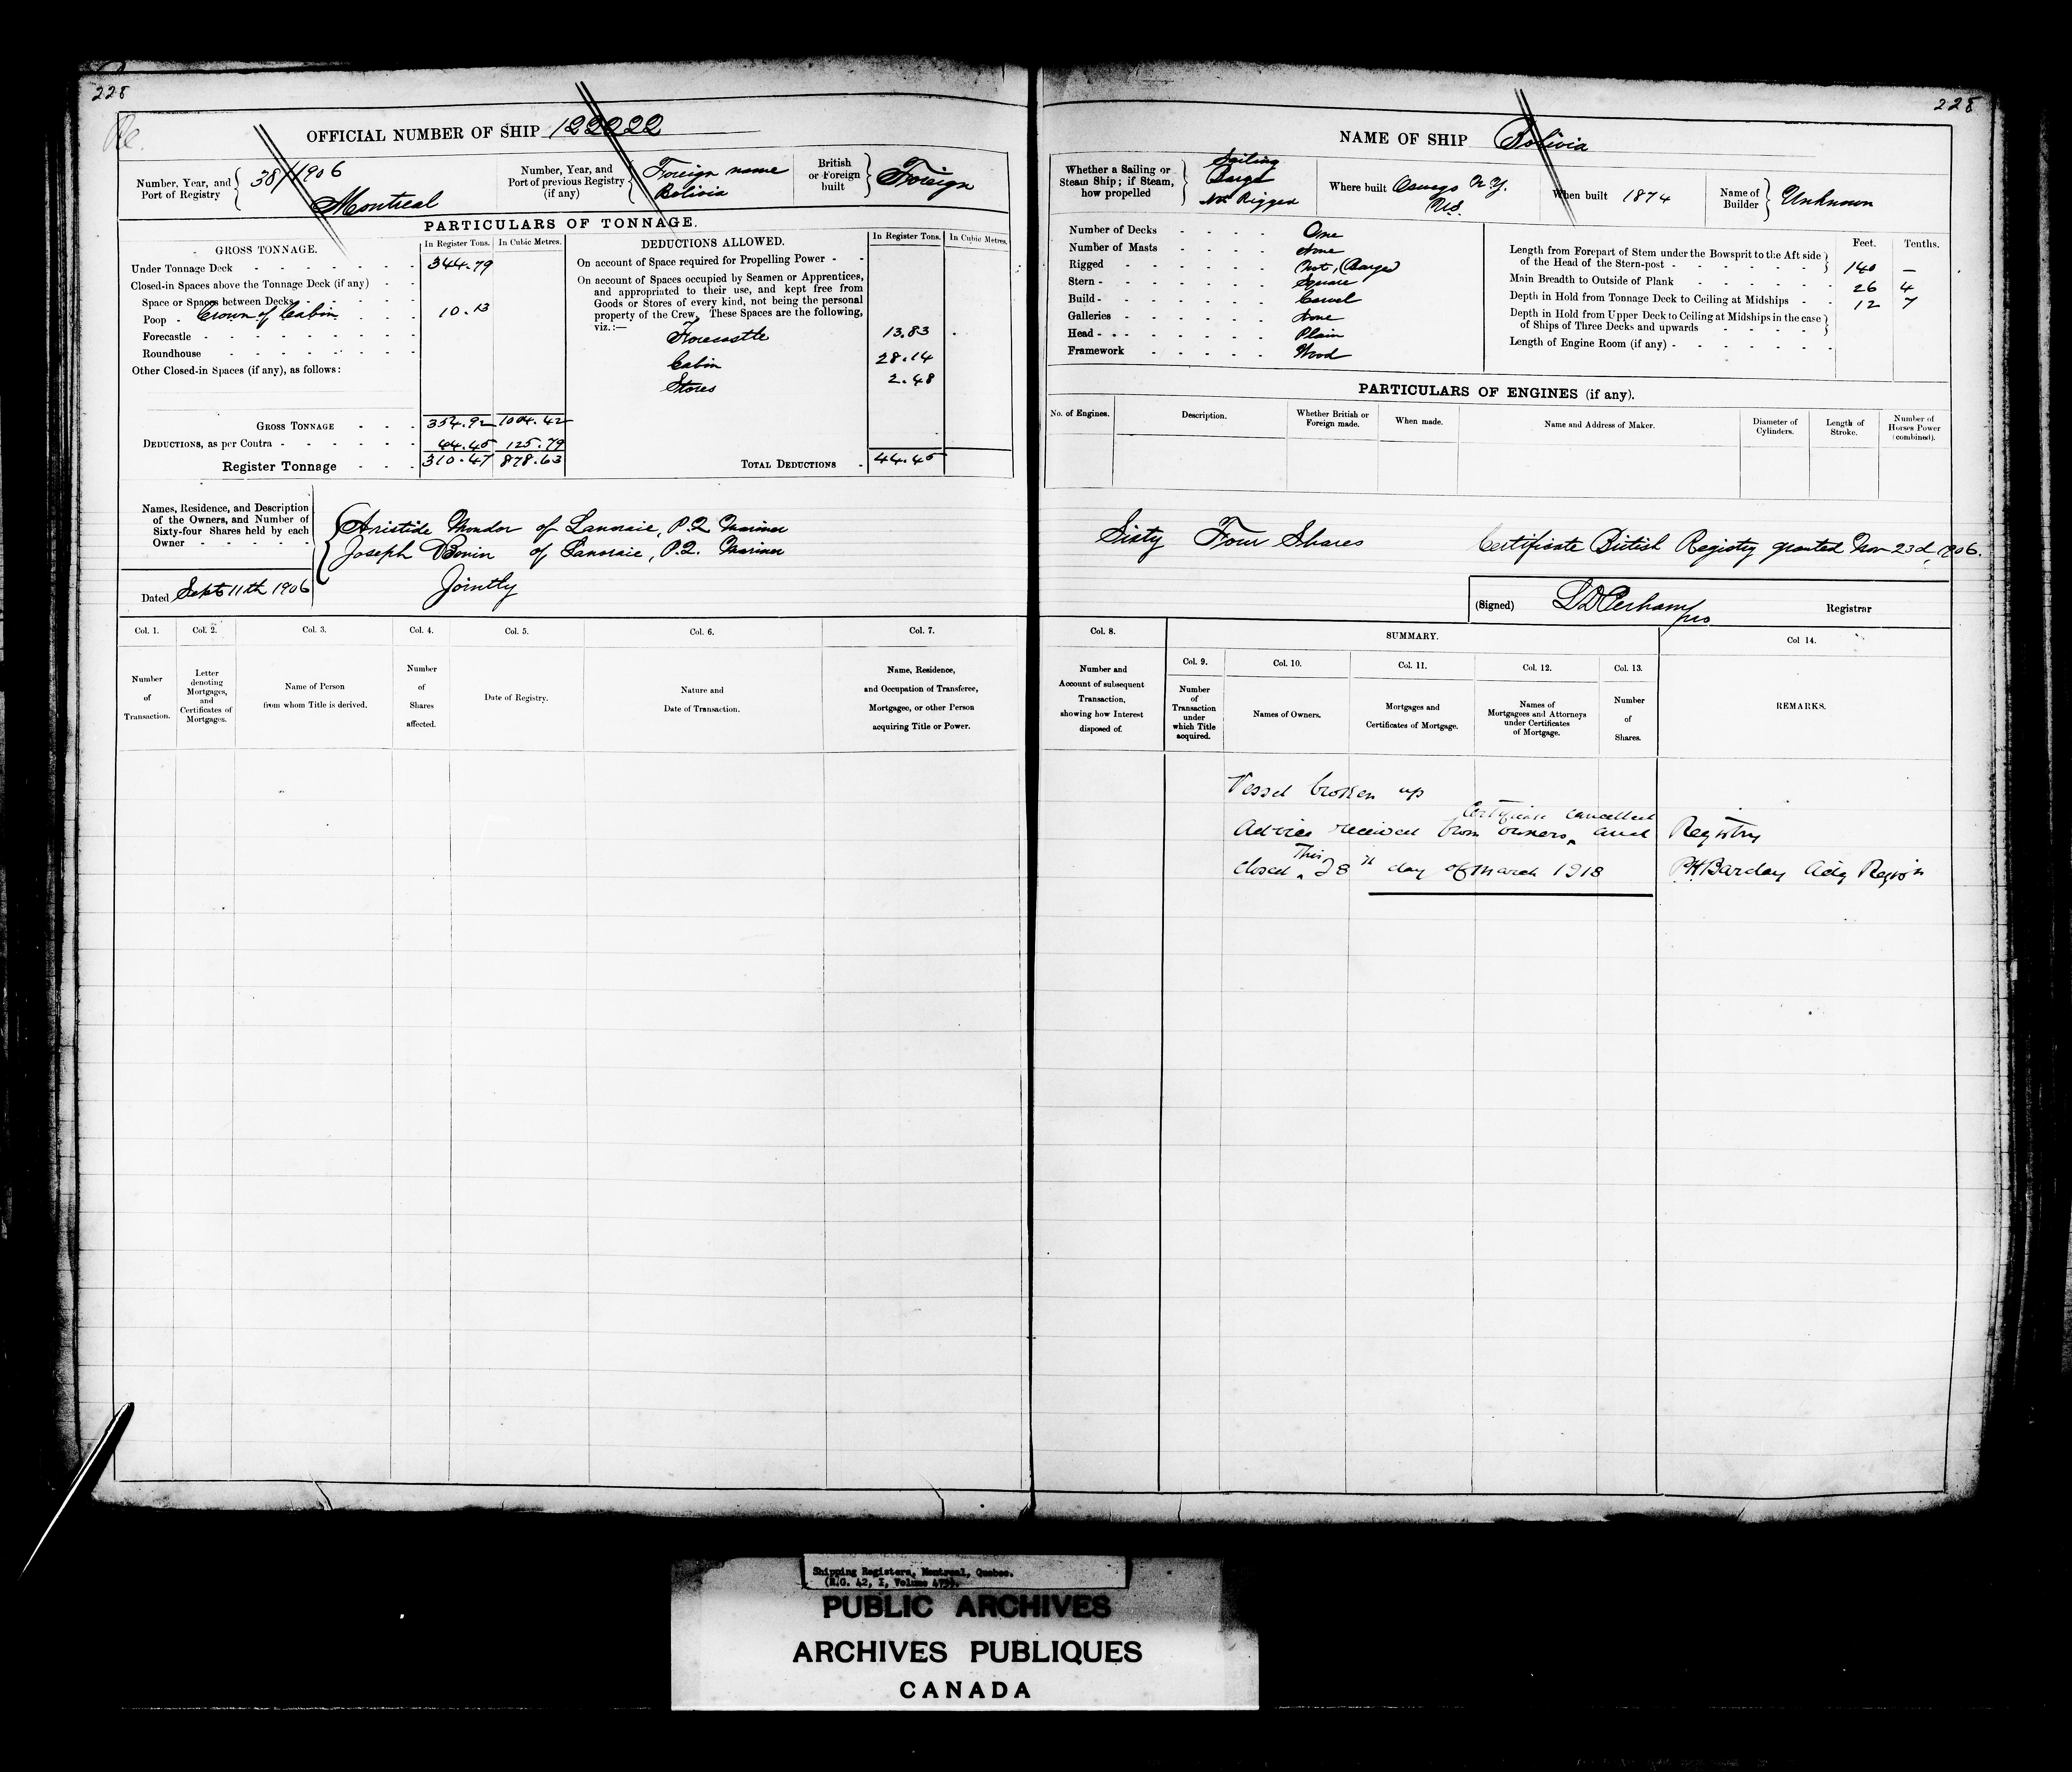 228
228
OFFICIAL NUMBER OF SHIP 122222
Number, Year, and Port of Registry
38/1906
Montreal
Number, Year, and Port of previous Registry (if any)
Foreign name
Bolivia
British or Foreign built
Foreign
PARTICULARS OF TONNAGE.
GROSS TONNAGE.
In Register Tons.
In Cubic Metres.
Under Tonnage Deck 344.79
Closed-in Spaces above the Tonnage Deck (if any)
Space or Spaces between Decks
Poop Crown of Cabin 10.13
Forecastle
Roundhouse
Other Closed-in Spaces (if any), as follows:
GROSS TONNAGE 354.92 1004.42
DEDUCTIONS, as per Contra 44.45 125.79
Register Tonnage 310.47 878.63
DEDUCTIONS ALLOWED.
In Register Tons.
In Cubic Metres.
On account of Space required for Propelling Power
On account of Spaces occupied by Seamen or Apprentices,
and appropriated to their use, and kept free from
Goods or Stores of every kind, not being the personal
property of the Crew. These Spaces are the following,
viz.:—
Forecastle 13.83
Cabin 28.14
Stores 2.48
TOTAL DEDUCTIONS 44.45
Names, Residence, and Description
of the Owners, and Number of
Sixty-four Shares held by each
Owner
Aristide Mondor of Lanoraie, P.Q. Mariner
Joseph Bonin of Lanoraie, P.Q. Mariner
Jointly
Dated Sept 11th 1906
Col. 1.
Number
of
Transaction.
Col. 2.
Letter
denoting
Mortgages,
and
Certificates of
Mortgages.
Col. 3.
Name of Person
from whom Title is derived.
Col. 4.
Number
of
Shares
affected.
Col. 5.
Date of Registry.
Col. 6.
Nature and
Date of Transaction.
Col. 7.
Name, Residence,
and Occupation of Transferee,
Mortgagee, or other Person
acquiring Title or Power.
NAME OF SHIP Bolivia
Whether a Sailing or
Steam Ship; if Steam,
how propelled
Sailing
Barge
Not Rigged
Where built Oswego N.Y.
U.S.
When built 1874
Name of Builder
Unknown
Number of Decks One
Number of Masts None
Rigged Not, (Barge)
Stern Square
Build Carvel
Galleries None
Head Plain
Framework Wood
Feet. Tenths.
Length from Forepart of Stem under the Bowsprit to the Aft side
of the Head of the Stern-post 140 —
Main Breadth to Outside of Plank 26 4
Depth in Hold from Tonnage Deck to Ceiling at Midships 12 7
Depth in Hold from Upper Deck to Ceiling at Midships in the case
of Ships of Three Decks and upwards
Length of Engine Room (if any)
PARTICULARS OF ENGINES (if any).
No. of Engines.
Description.
Whether British or
Foreign made.
When made.
Name and Address of Maker.
Diameter of
Cylinders.
Length of
Stroke.
Number of
Horses Power
(combined).
Sixty Four Shares
Certificate British Registry granted Nov 23d, 1906.
(Signed)
Registrar
Col. 8.
Number and
Account of subsequent
Transaction,
showing how Interest
disposed of.
SUMMARY.
Col. 9.
Number
of
Transaction
under
which Title
acquired.
Col. 10.
Names of Owners.
Col. 11.
Mortgages and
Certificates of Mortgage.
Col. 12.
Names of
Mortgagees and Attorneys
under Certificates
of Mortgage.
Col. 13.
Number
of
Shares.
Col 14.
REMARKS.
Vessel broken up
Certificate cancelled
Advice received from owners, and Registry
closed This 28th day of March 1918
PH Barclay Actg Registr
Shipping Registers, Montreal, Quebec.
PUBLIC ARCHIVES
ARCHIVES PUBLIQUES
CANADA